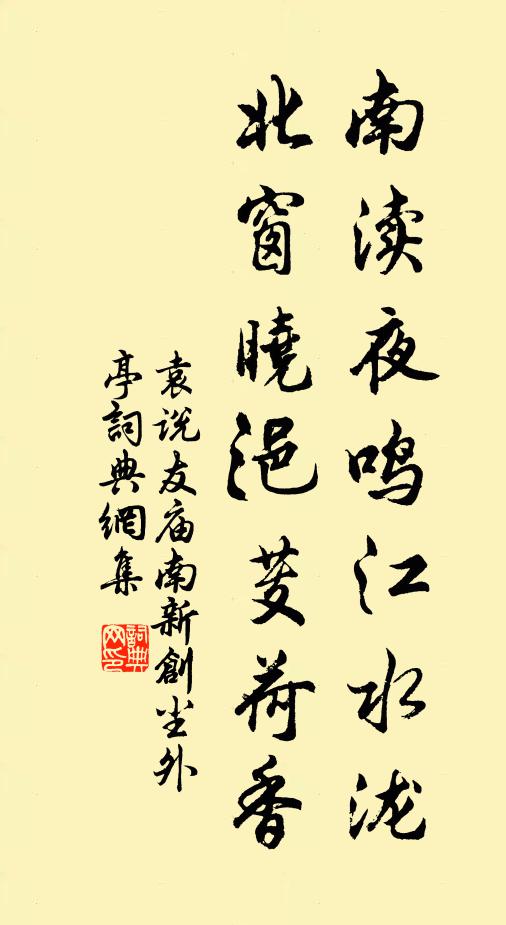 南渎夜鸣江水泷
北窗晓浥芰荷香
袁说友庙南新創尘外
亭詞典網集
詞典网印